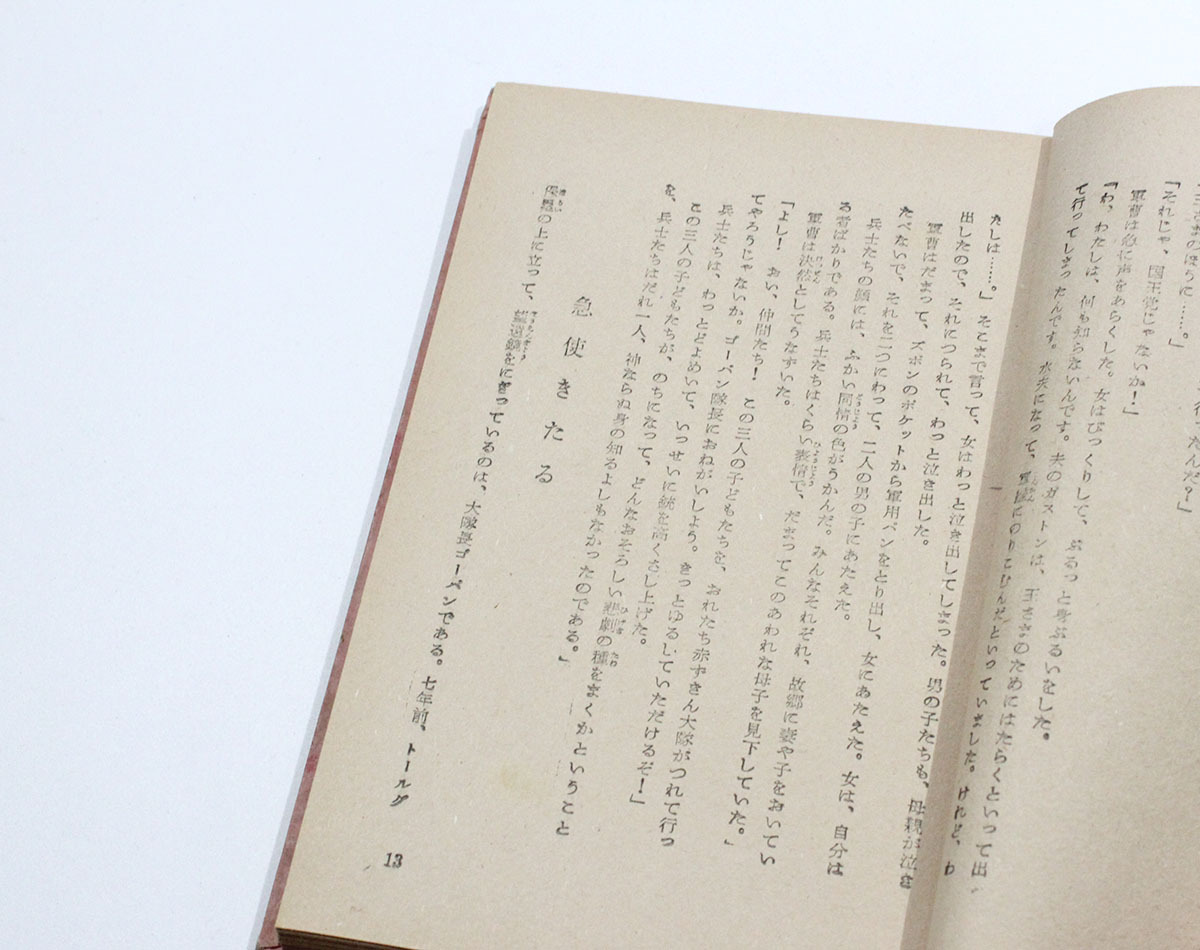 王さまのほうに……。」
行ったんだ？」
「それじゃ、国王党じゃないか！」
軍曹は急に声をあらくした。女はびっくりして、ぶるっと身ぶるいをした。
「わ、わたしは、何も知らないんです。夫のガストンは、王さまのためにはたらくといって出
て行ってしまったんです。水夫になって、軍艦にのりこむんだといっていました。けれど、わ
たしは……。」そこまで言って、女はわっと泣き出してしまった。男の子たちも、母親が泣き
出したので、それにつられて、わっと泣き出した。
軍曹はだまって、ズボンのポケットから軍用パンをとり出し、女にあたえた。女は、自分は
たべないで、それを二つにわって、二人の男の子にあたえた。
兵士たちの顔には、ふかい同情の色がうかんだ。みんなそれぞれ、故郷に妻や子をおいてい
る者ばかりである。兵士たちはくらい表情で、だまってこのあわれな母子を見下していた。」
軍曹は決然としてうなずいた。
「よし！　おい、仲間たち！　この三人の子どもたちを、おれたち赤ずきん大隊がつれて行っ
てやろうじゃないか。ゴーバン隊長におねがいしよう。きっとゆるしていただけるぞ！」
兵士たちは、わっとどよめいて、いっせいに銃を高くさし上げた。
この三人の子どもたちが、のちになって、どんなおそろしい悲劇の種をまくかということ
を、兵士たちはだれ一人、神ならぬ身の知るよしもなかったのである。」
急使きたる
の上に立って、望遠鏡をにぎっているのは、大隊長ゴーバンである。七年前、トールグ
13